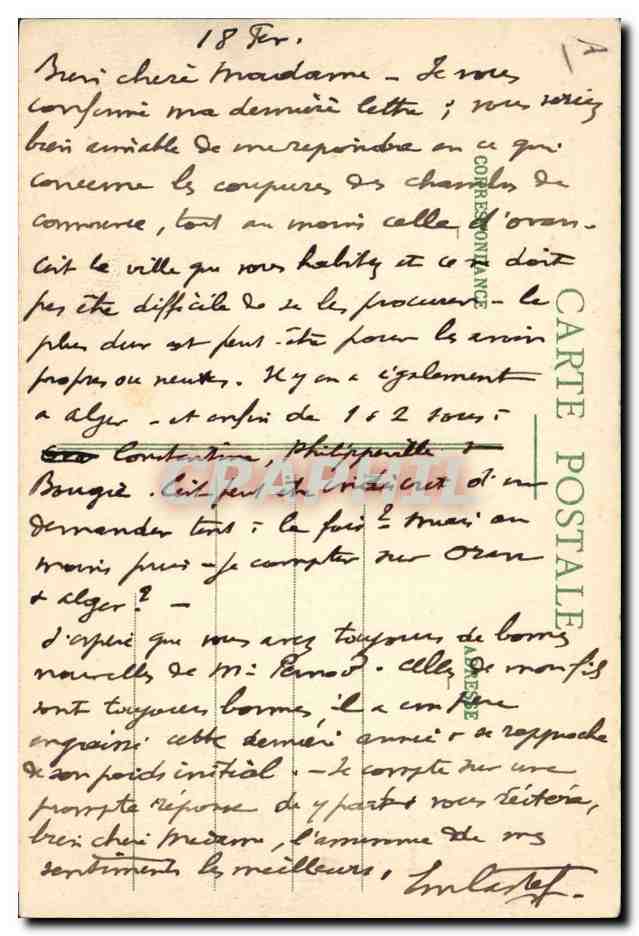 18 Fev.
A
Bien chère Madame - Je vous
confirme ma dernière lettre ; vous seriez
bien aimable de me repondre en ce qui
concerne les coupures des chambres de
commerce, tout au moins celle d'oran -
C'est la ville que vous habitez et ce ne doit
pas être difficile de se les procurer - le
plus dur est peut-être pour les avoir
propres ou neuves. Il y en a également
a alger - et enfin de 1 & 2 sous :
Constantine, Philippeville &
Bougie. C'est peut être indiscret d'en
demander tant à la fois ? mais au
moins puis-je compter sur Oran
& alger ? -
J'espère que vous avez toujours de bonnes
nouvelles de Mr. Celles de mon fils
sont toujours bonnes, il a un peu
engraissé cette dernière année & se rapproche
de son poids initial. - Je compte sur une
prompte réponse de y part & vous réitère,
bien chère Madame, l'assurance de mes
sentiments les meilleurs.
CARTE POSTALE
CORRESPONDANCE
ADRESSE
CPAPHIL